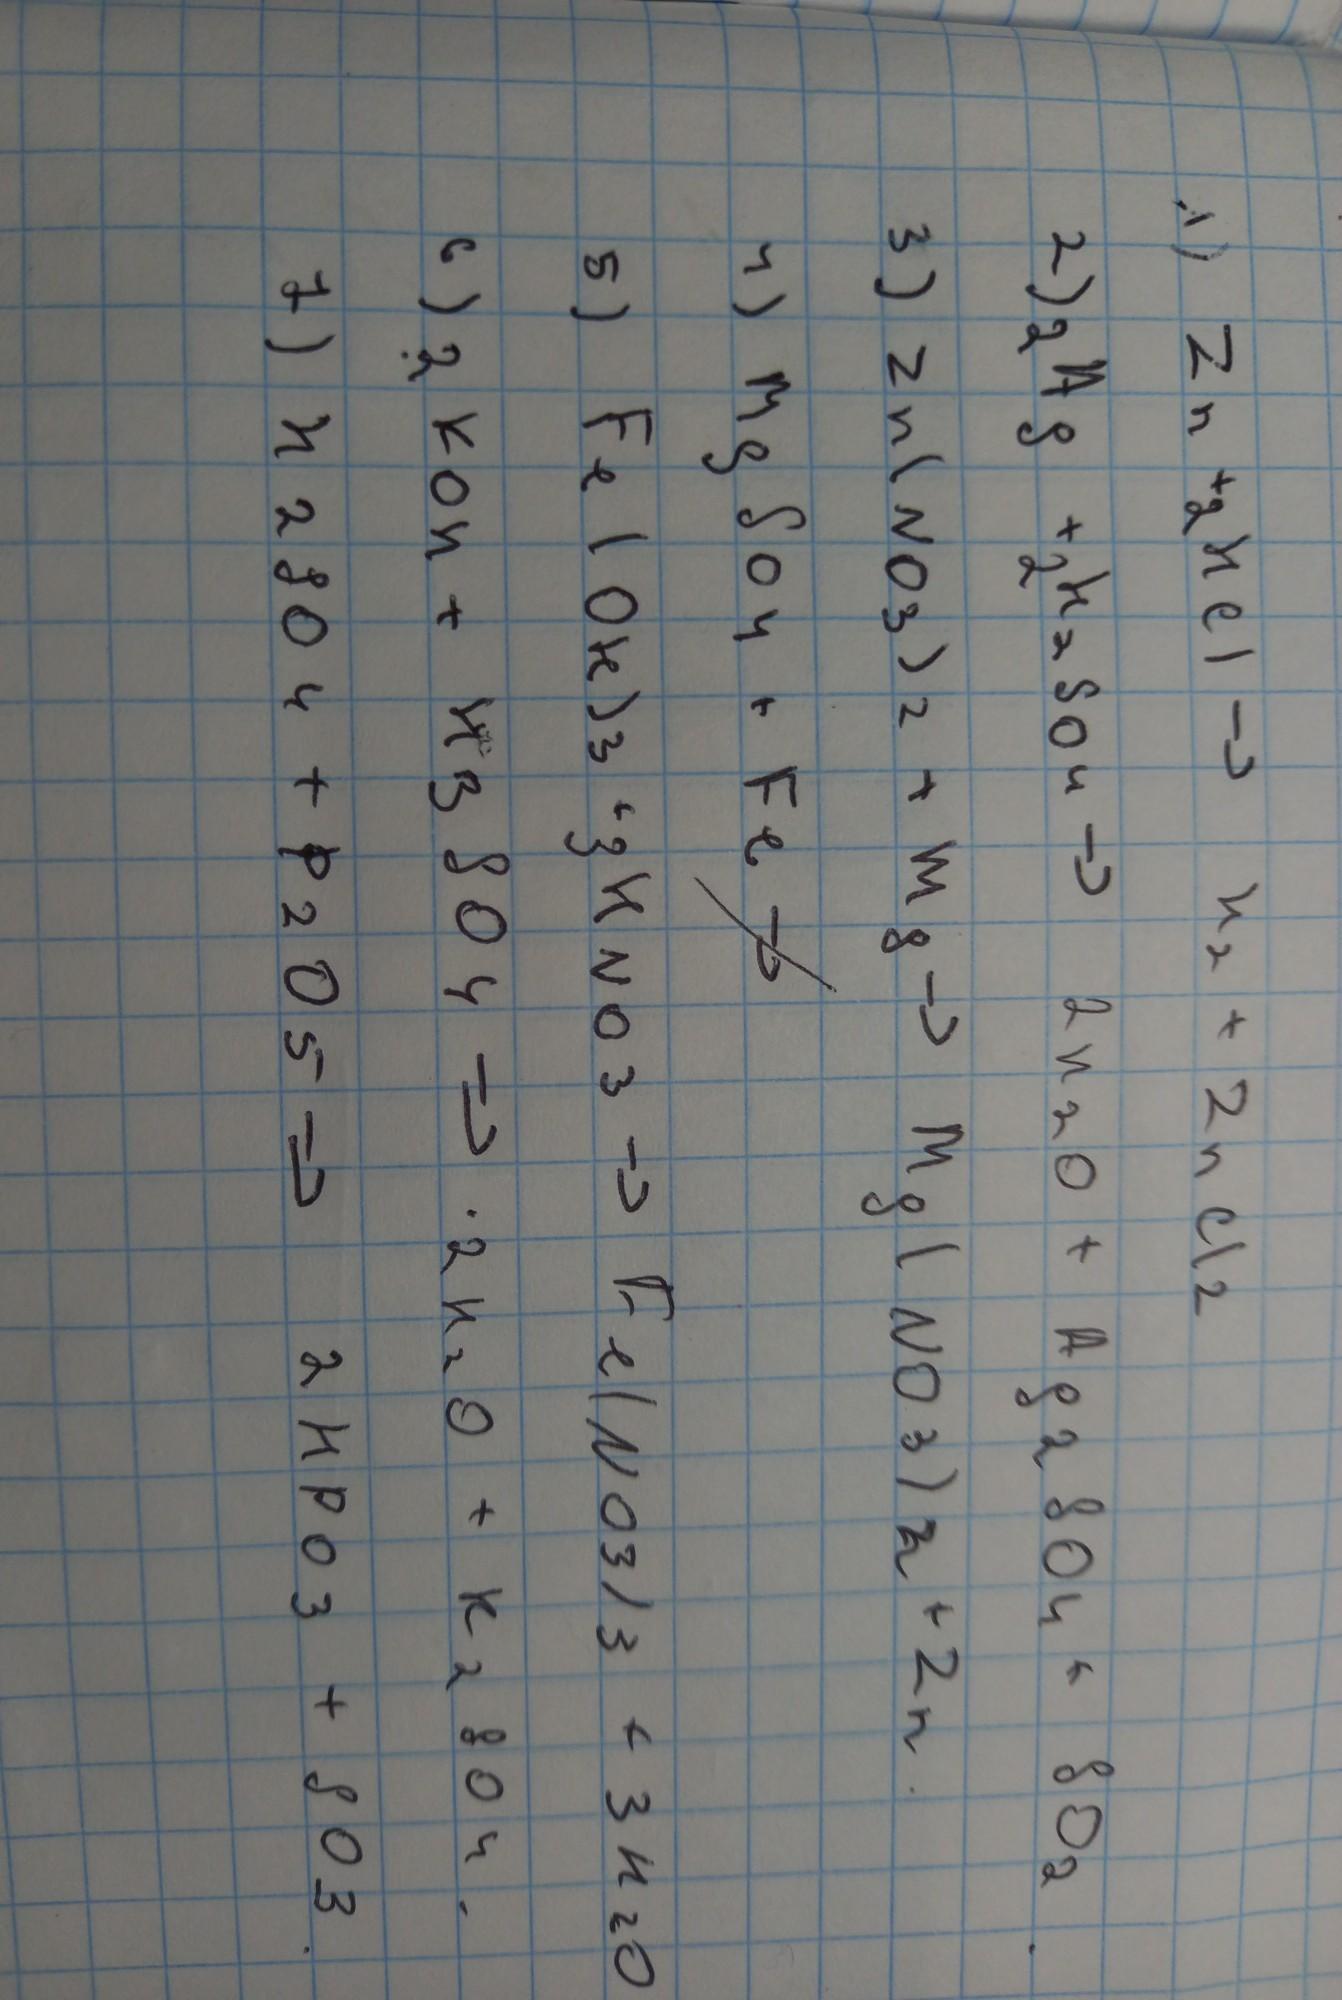 1) Zn + 2HCl → H2 + ZnCl2
2) 2Ag + 2H2SO4 → 2H2O + Ag2SO4 + SO2.
3) Zn(NO3)2 + Mg → Mg(NO3)2 + Zn.
4) MgSO4 + Fe ↛
5) Fe(OH)3 + 3HNO3 → Fe(NO3)3 + 3H2O
6) 2KOH + H3SO4 → 2H2O + K2SO4.
7) H2SO4 + P2O5 → 2HPO3 + SO3.